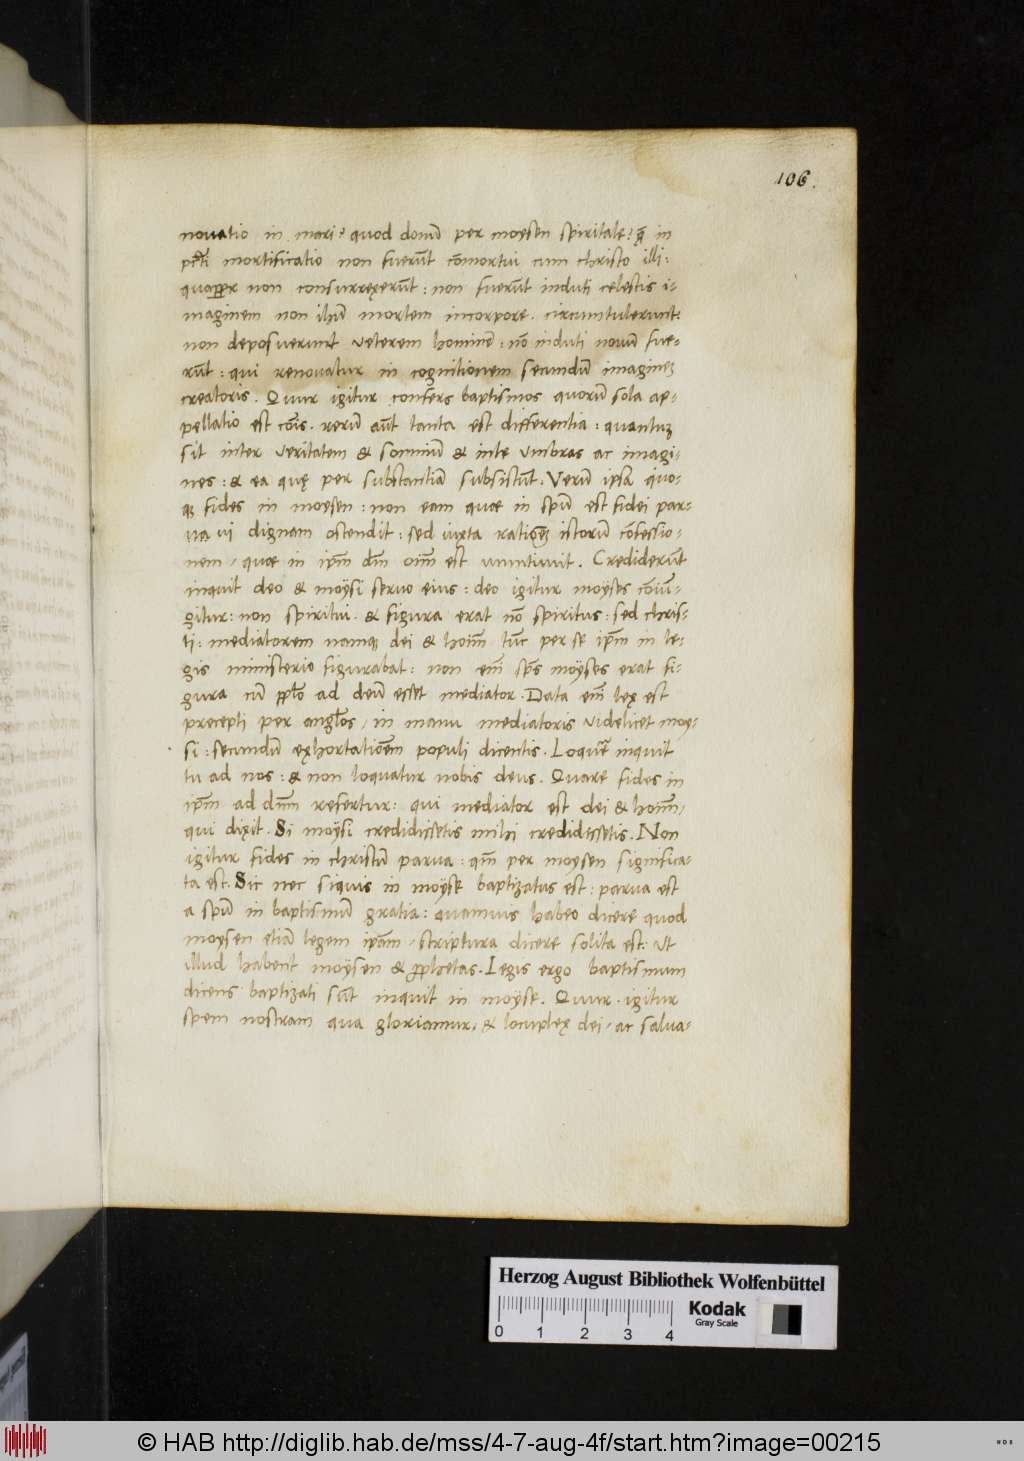 106.
novatio in mari? quod donũ per moysen spiritale? q̃ in
pctĩ mortificatio non fuerũt cõmortui cum christo illi:
quapper non consurrexerũt: non fuerũt induti celestis i-
maginem non ihũ mortem in corpore. circumtulerunt:
non deposuerunt veterem hominẽ: nõ induti novũ fue-
rũt: qui renovatur in cognitionem secundũ imaginez
creatoris. Quur igitur confers baptismos quorũ sola ap-
pellatio est cõis. rerũ aũt tanta est differentia: quantuz
sit inter veritatem & somniũ & inte umbras ac imagi-
nes: & ea quę per substantiã subsistũt. Verũ ipsã quo-
q; fides in moysen: non eam quae in spũ est fidei par-
va vi dignam ostendit: sed iuxta rationẽ istorũ cõfessio-
nem, quae in ipm̃ dm̃ oim̃ est ununtiuit. Crediderũt
inquit deo & moÿsi servo eius: deo igitur moÿses cõiũ-
gitur: non spiritui. & figura erat nõ spiritus: sed chris-
ti: mediatorem namq; dei & hoım̃ tũc per se ipm̃ in le-
gis ministerio figurabat: non em̃ sp̃s moÿses erat fi-
gura cũ pp̃lo ad deũ esset mediator. Data em̃ lex est
precepti per angl̃os, in manu mediatoris videlicet moy-
si: secundũ exhortationẽm populi dicentis. Loquẽ inquit
tu ad nos: & non loquatur nobis deus. Quare fides in
ipm̃ ad dm̃m refertur: qui mediator est dei & hoım̃,
qui dixit. Si moÿsi credidissetis mihi credidissetis. Non
igitur fides in christũ parva: qm̃ per moysen significa-
ta est. Sic nec siquis in moÿse baptizatus est: parva est
a spũ in baptismũ gratia: quamvis habeo dicere quod
moysen etiã legem ipãm, scriptura dicere solita est: ut
illud habent moÿsen & pphetas. Legis ergo baptismum
dicens baptizati sũt inquit in moÿse. Quur igitur
spem nostram qua gloriamur, & locuplex dei, ac salva-
Herzog August Bibliothek Wolfenbüttel
0 1 2 3 4
Kodak
Gray Scale
© HAB http://diglib.hab.de/mss/4-7-aug-4f/start.htm?image=00215